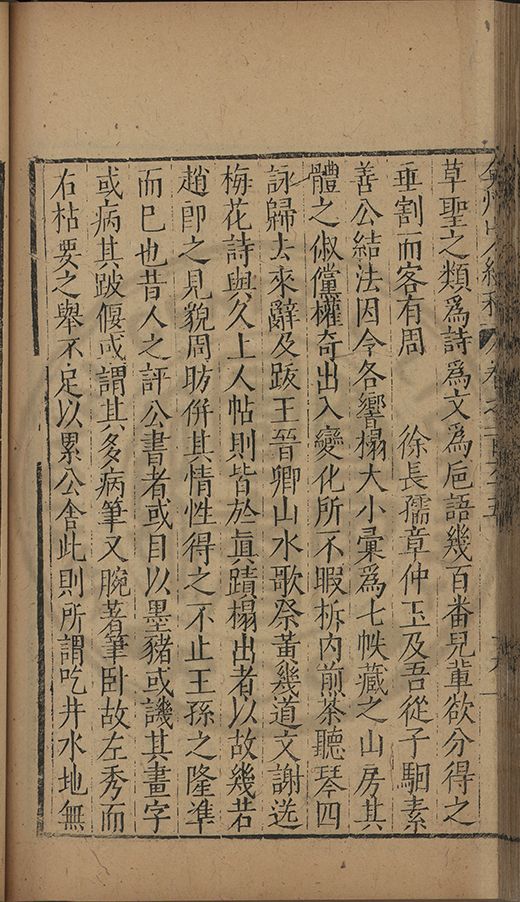 草聖之類爲詩爲文爲巵語幾百番兒輩欲分得之
亟割而客有周　徐長孺章仲玉及吾從子駰素
善公結法因令各響搨大小彙爲七帙藏之山房其
體之俶儻權奇出入變化所不暇柝内煎茶聽琴四
詠歸去來辭及跋王晉卿山水歌祭黃幾道文謝送
梅花詩與久上人帖則皆於眞蹟搨出者以故幾若
趙郎之見貌周昉併其情性得之不止王孫之隆準
而巳也昔人之評公書者或目以墨豬或譏其畫字
或病其跛偃或謂其多病筆又腕著筆卧故左秀而
右枯要之舉不足以累公舍此則所謂吃井水地無